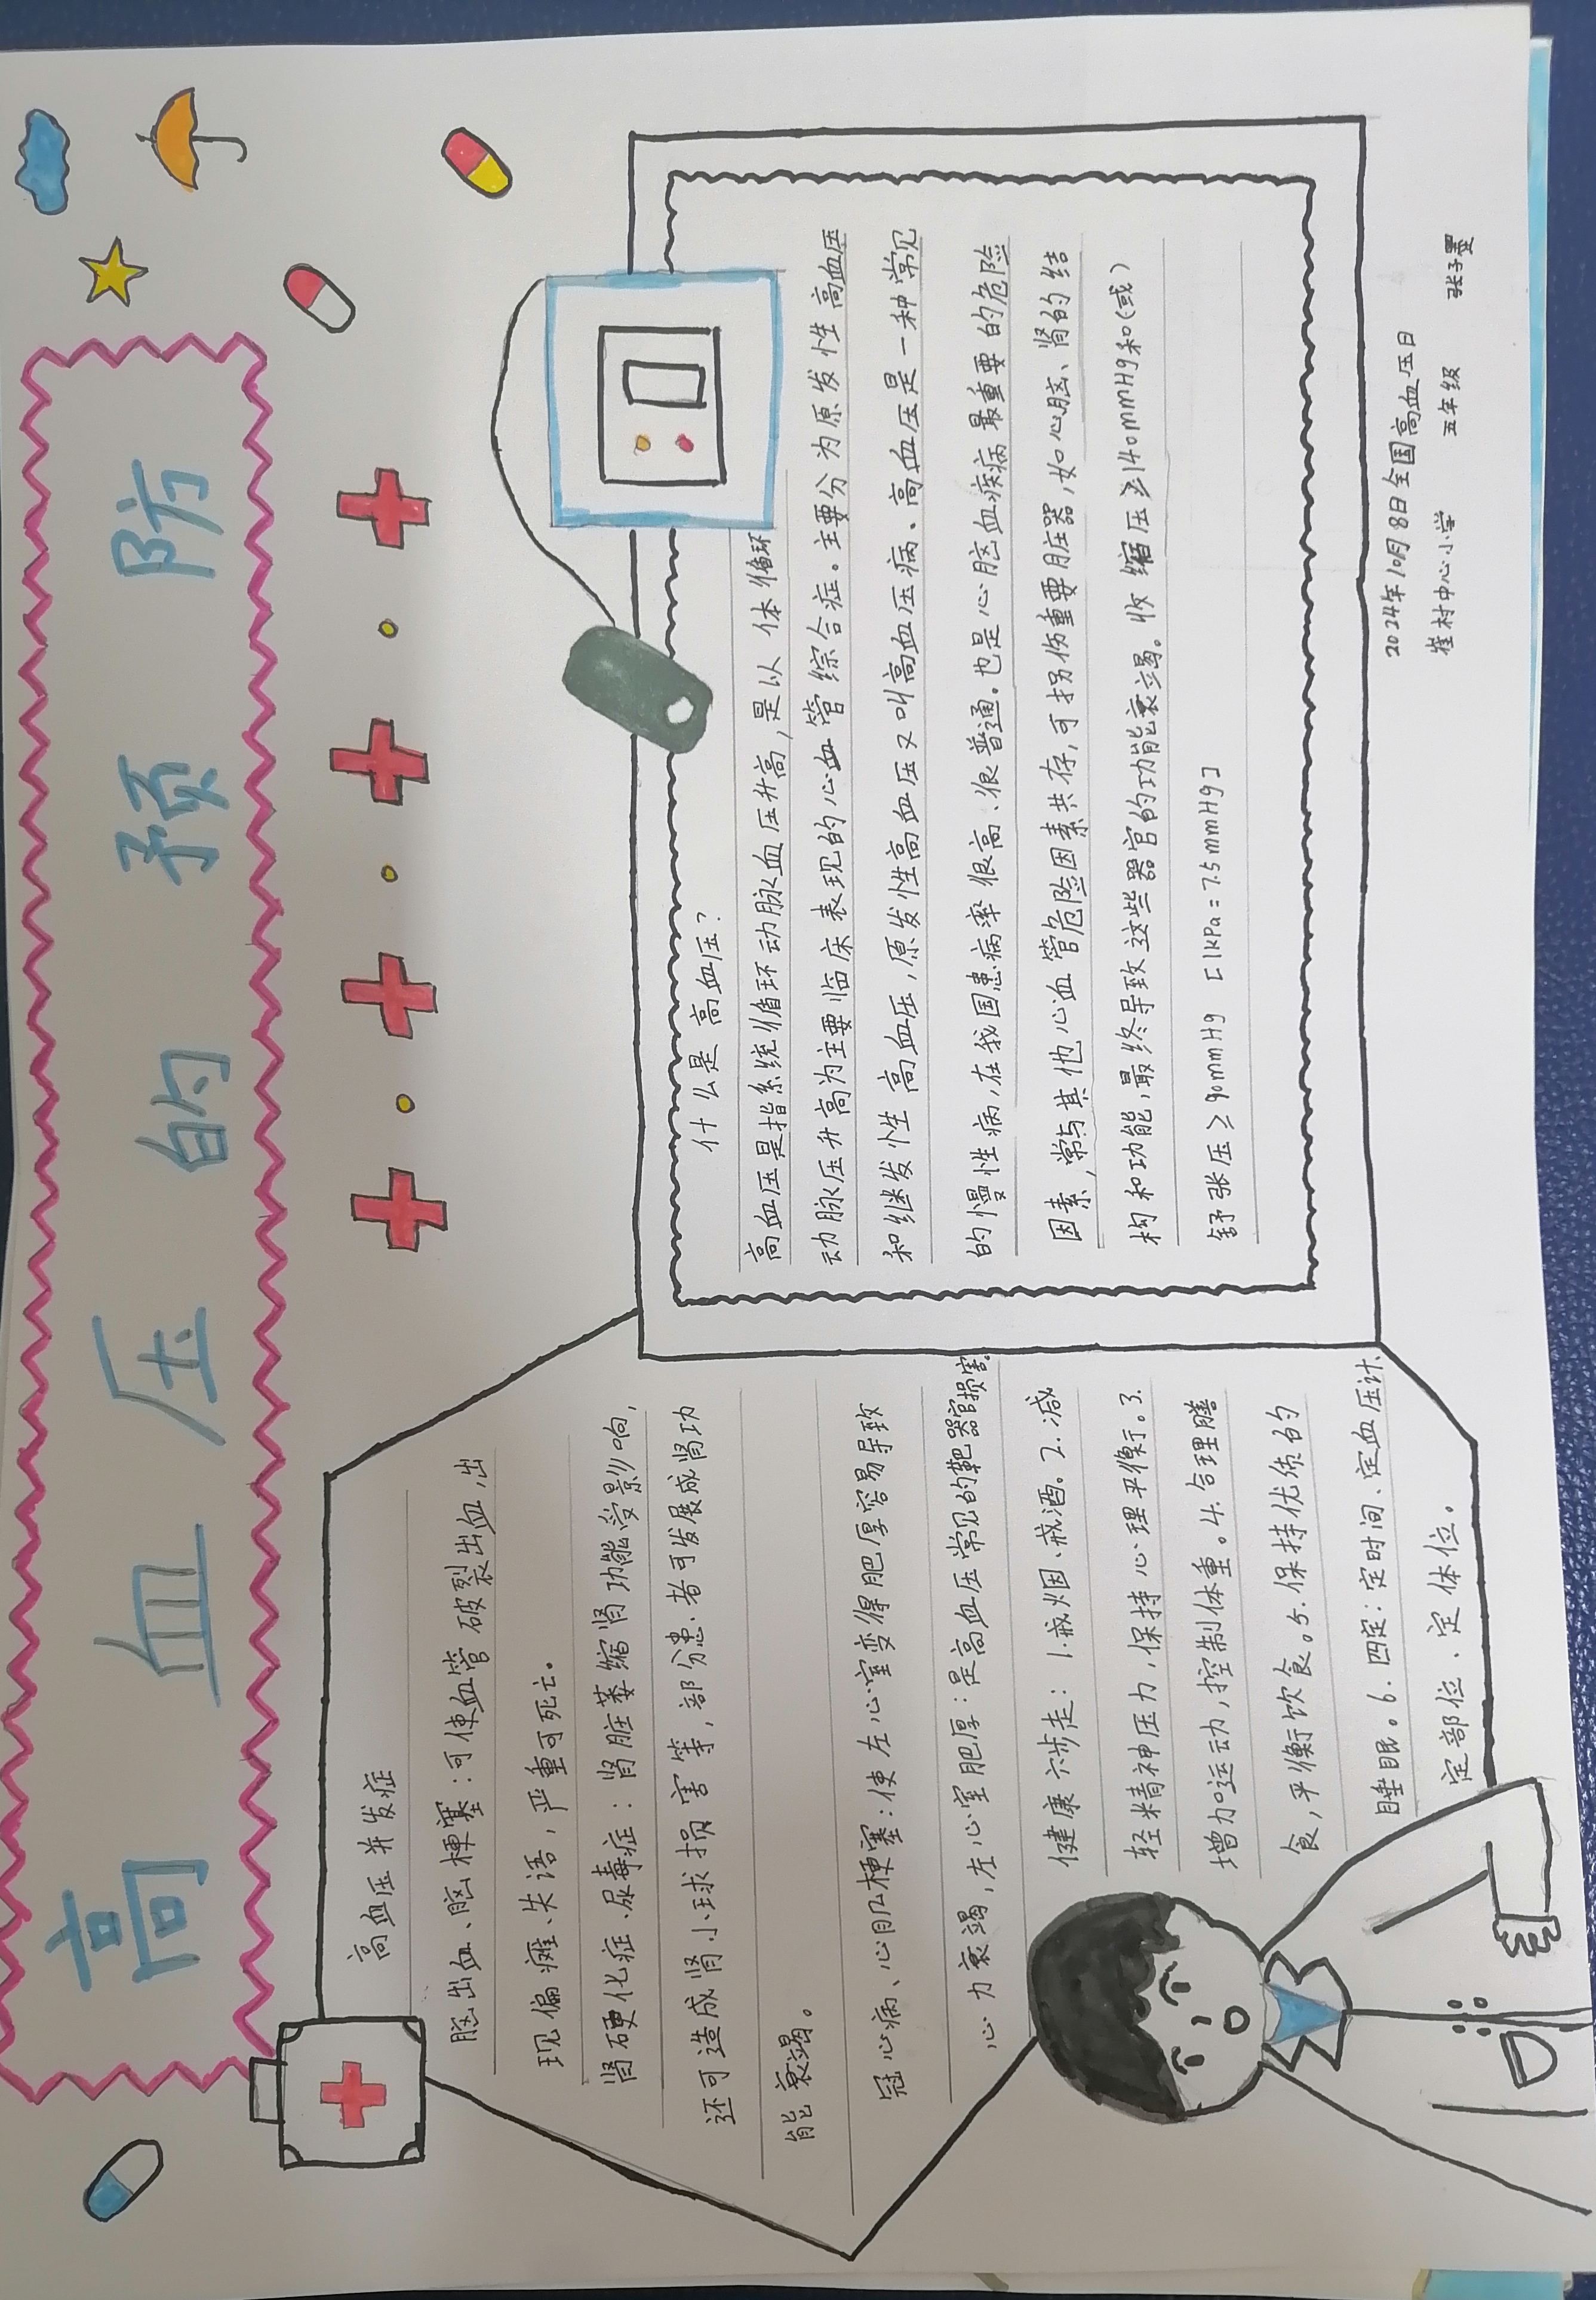 高血压的预防
高血压并发症
脑出血、脑梗塞：可使血管破裂出血，出
现偏瘫、失语，严重可死亡。
肾硬化症、尿毒症：肾脏萎缩肾功能受影响，
还可造成肾小球损害等，部分患者可发展成肾功
能衰竭。
冠心病、心肌梗塞：使左心室变得肥厚容易导致
心力衰竭，左心室肥厚：是高血压常见的靶器官损害。
健康六步走：1.戒烟、戒酒。2.减
轻精神压力，保持心理平衡。3.
增加运动，控制体重。4.合理膳
食，平衡饮食。5.保持优质的
睡眠。6.四定：定时间、定血压计、
定部位、定体位。
什么是高血压？
高血压是指系统循环动脉血压升高，是以体循环
动脉压升高为主要临床表现的心血管综合症。主要分为原发性高血压
和继发性高血压，原发性高血压又叫高血压病、高血压是一种常见
的慢性病，在我国患病率很高、很普通。也是心脑血疾病最重要的危险
因素，常与其他心血管危险因素共存，可拐伤重要脏器，如心脑、肾的结
构和功能，最终导致这些器官的功能衰竭。收缩压≥140mmHg和（或）
舒张压≥90mmHg [1kPa=7.5mmHg]
2024年10月8日全国高血压日
崔村中心小学 五年级 张子墨